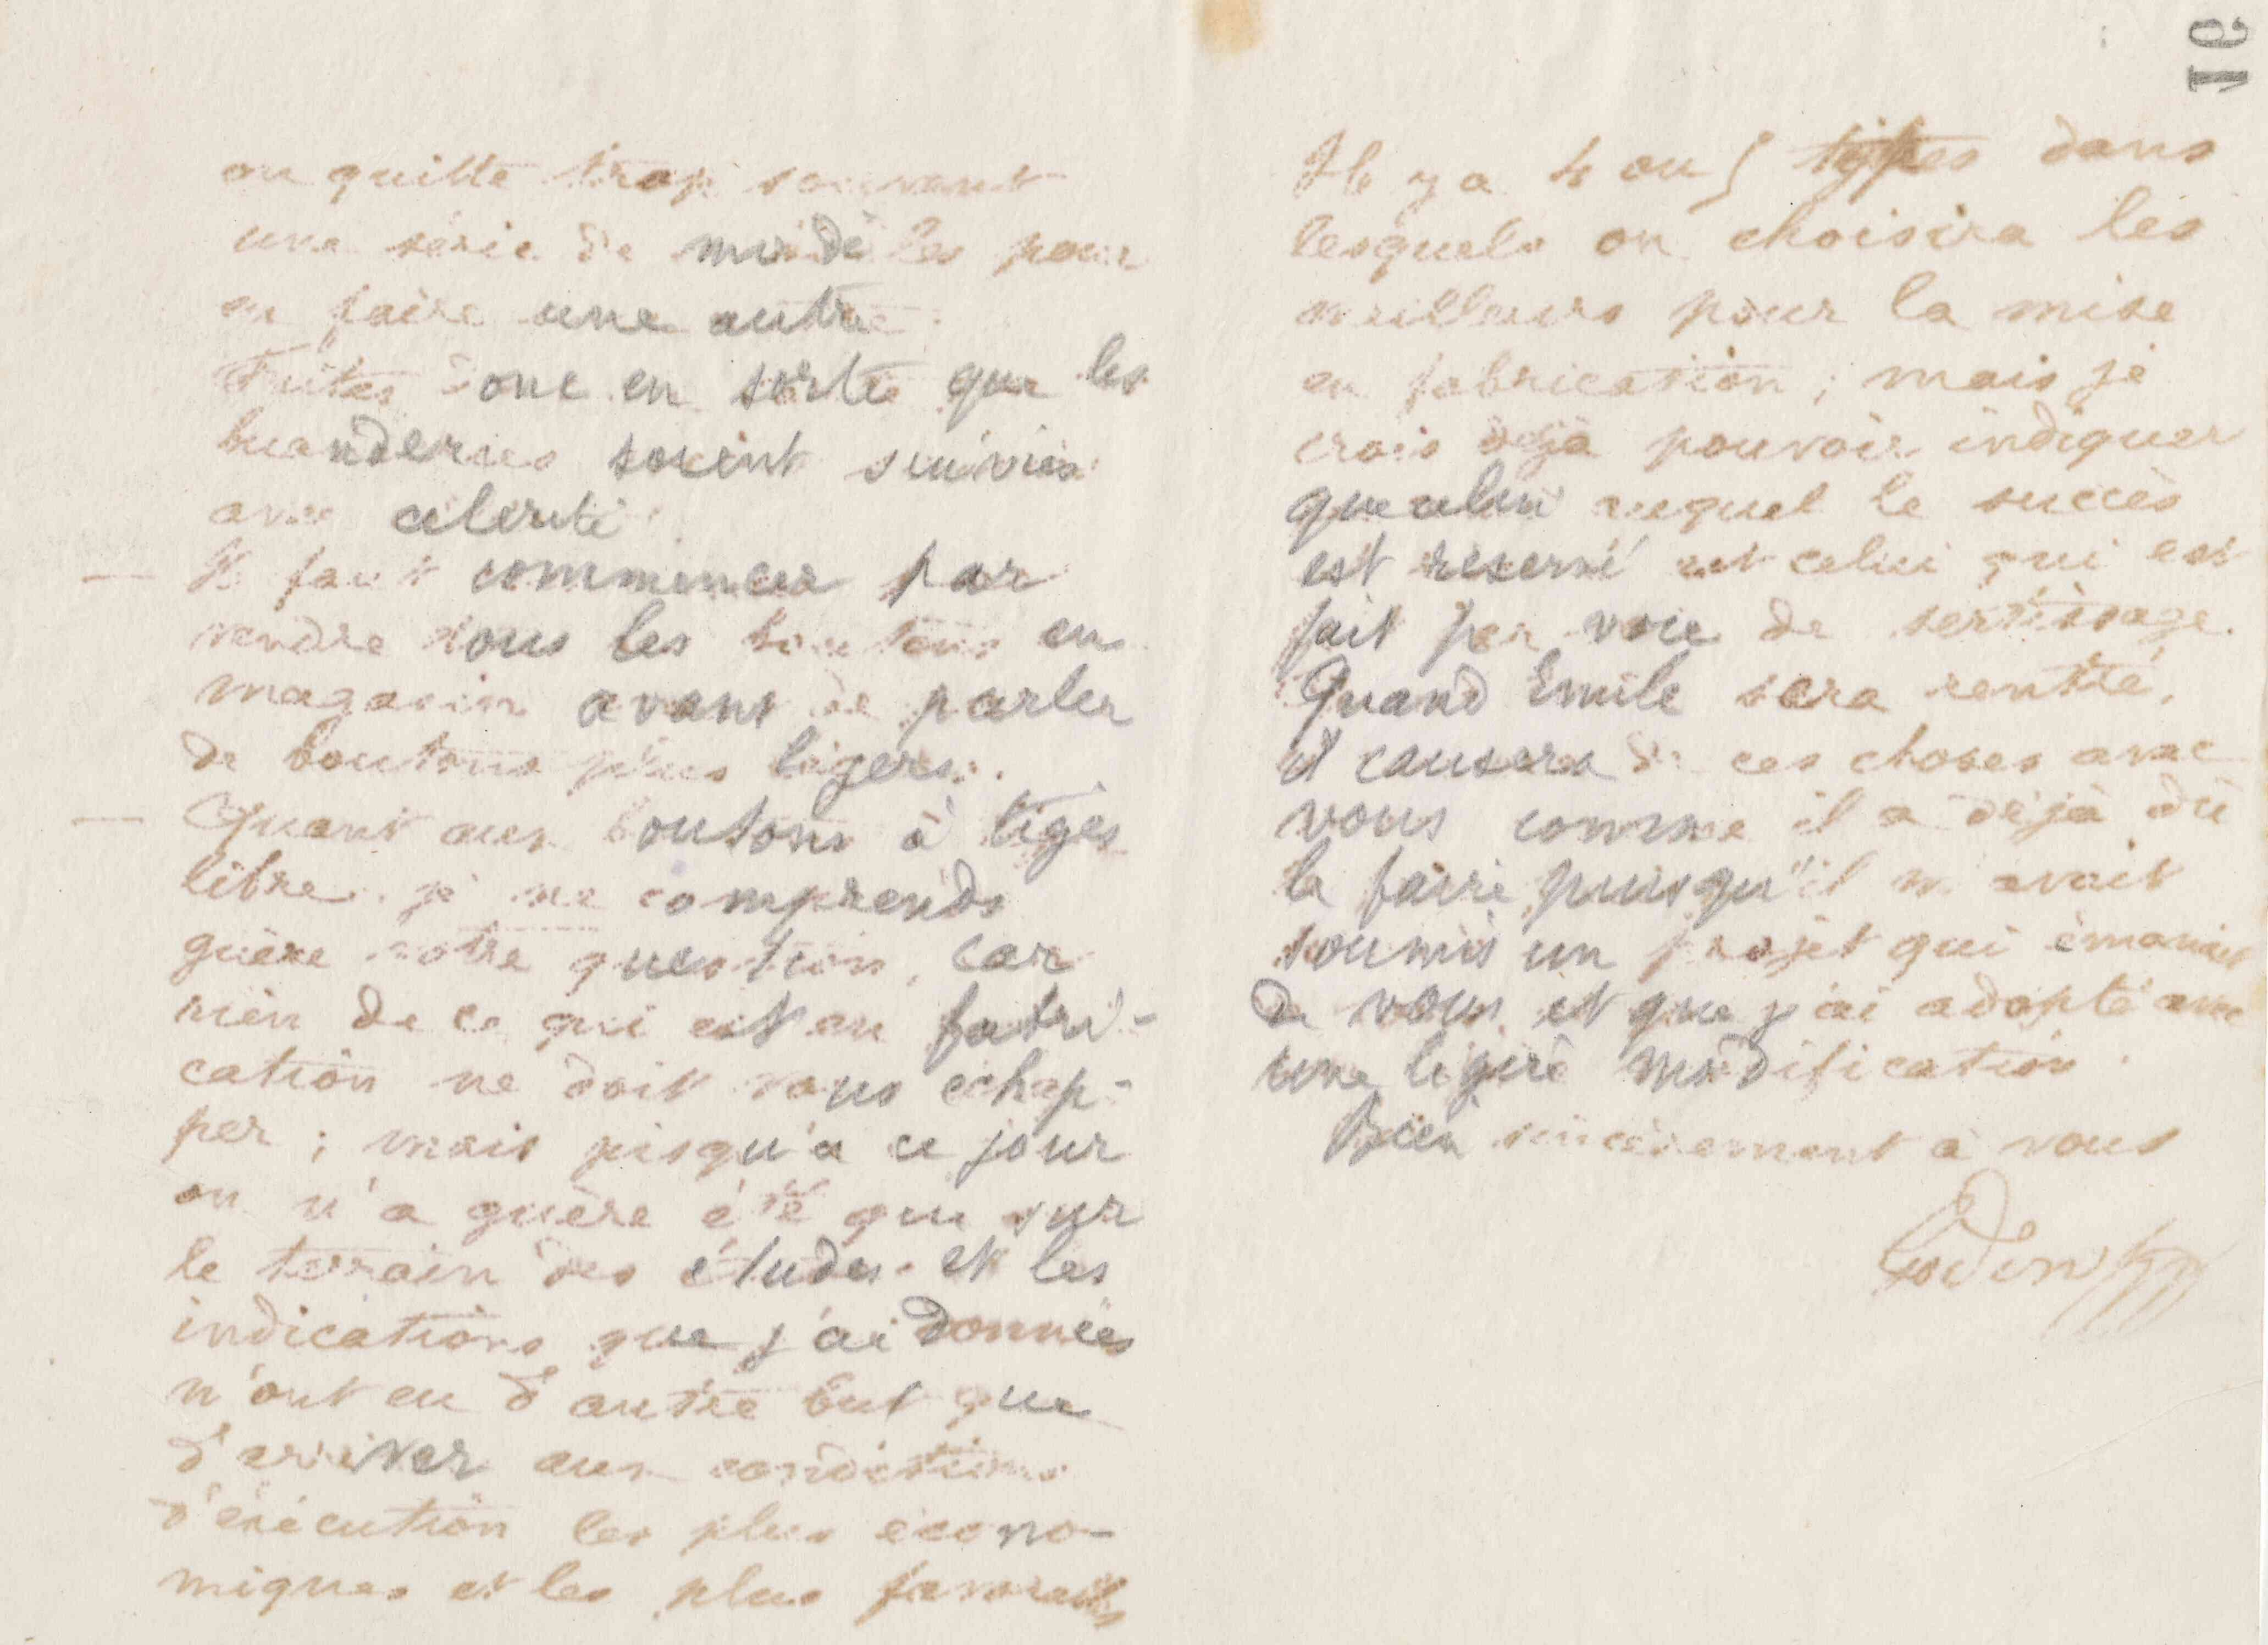 on quitte trop souvent
une série de modèles pour
en faire une autre.
Faites donc en sorte que les
buanderies soient suivies
avec célérité.
— Il faut commencer par
vendre tous les boutons en
magasin avant de parler
de boutons plus légers.
— Quant aux boutons à tiges
libres je ne comprends
guère votre question, car
rien de ce qui est en fabri-
cation ne doit vous échap-
per ; mais jusqu'à ce jour
on n'a guère été que sur
le terrain des études et les
indications que j'ai données
n'ont eu d'autre but que
d'arriver aux conditions
d'exécution les plus écono-
miques et les plus favorables
Il y a 4 ou 5 types dans
lesquels on choisira les
meilleurs pour la mise
en fabrication ; mais je
crois déjà pouvoir indiquer
que celui auquel le succès
est réservé est celui qui est
fait par voie de sertissage.
Quand Emile sera rentré,
il causera de ces choses avec
vous comme il a déjà dû
le faire puisqu'il m'avait
soumis un projet qui émanait
de vous et que j'ai adopté avec
une légère modification.
Bien sincèrement à vous
Godin
91